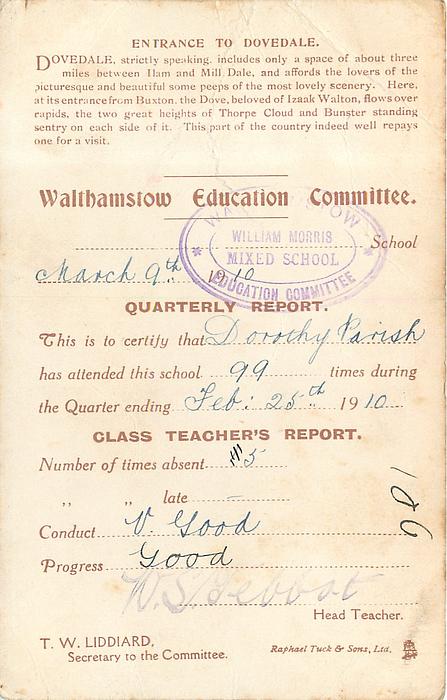 ENTRANCE TO DOVEDALE.
DOVEDALE, strictly speaking, includes only a space of about three
miles between Ilam and Mill Dale, and affords the lovers of the
picturesque and beautiful some peeps of the most lovely scenery. Here,
at its entrance from Buxton, the Dove, beloved of Izaak Walton, flows over
rapids, the two great heights of Thorpe Cloud and Bunster standing
sentry on each side of it. This part of the country indeed well repays
one for a visit.
Walthamstow Education Committee.
WALTHAMSTOW
WILLIAM MORRIS
MIXED SCHOOL
EDUCATION COMMITTEE
School
March 9th 1910
QUARTERLY REPORT.
This is to certify that Dorothy Parish
has attended this school 99 times during
the Quarter ending Feb: 25th 1910
CLASS TEACHER'S REPORT.
Number of times absent 5
„ „ late –
Conduct V Good
Progress Good
Head Teacher.
T. W. LIDDIARD,
Secretary to the Committee.
Raphael Tuck & Sons, Ltd.